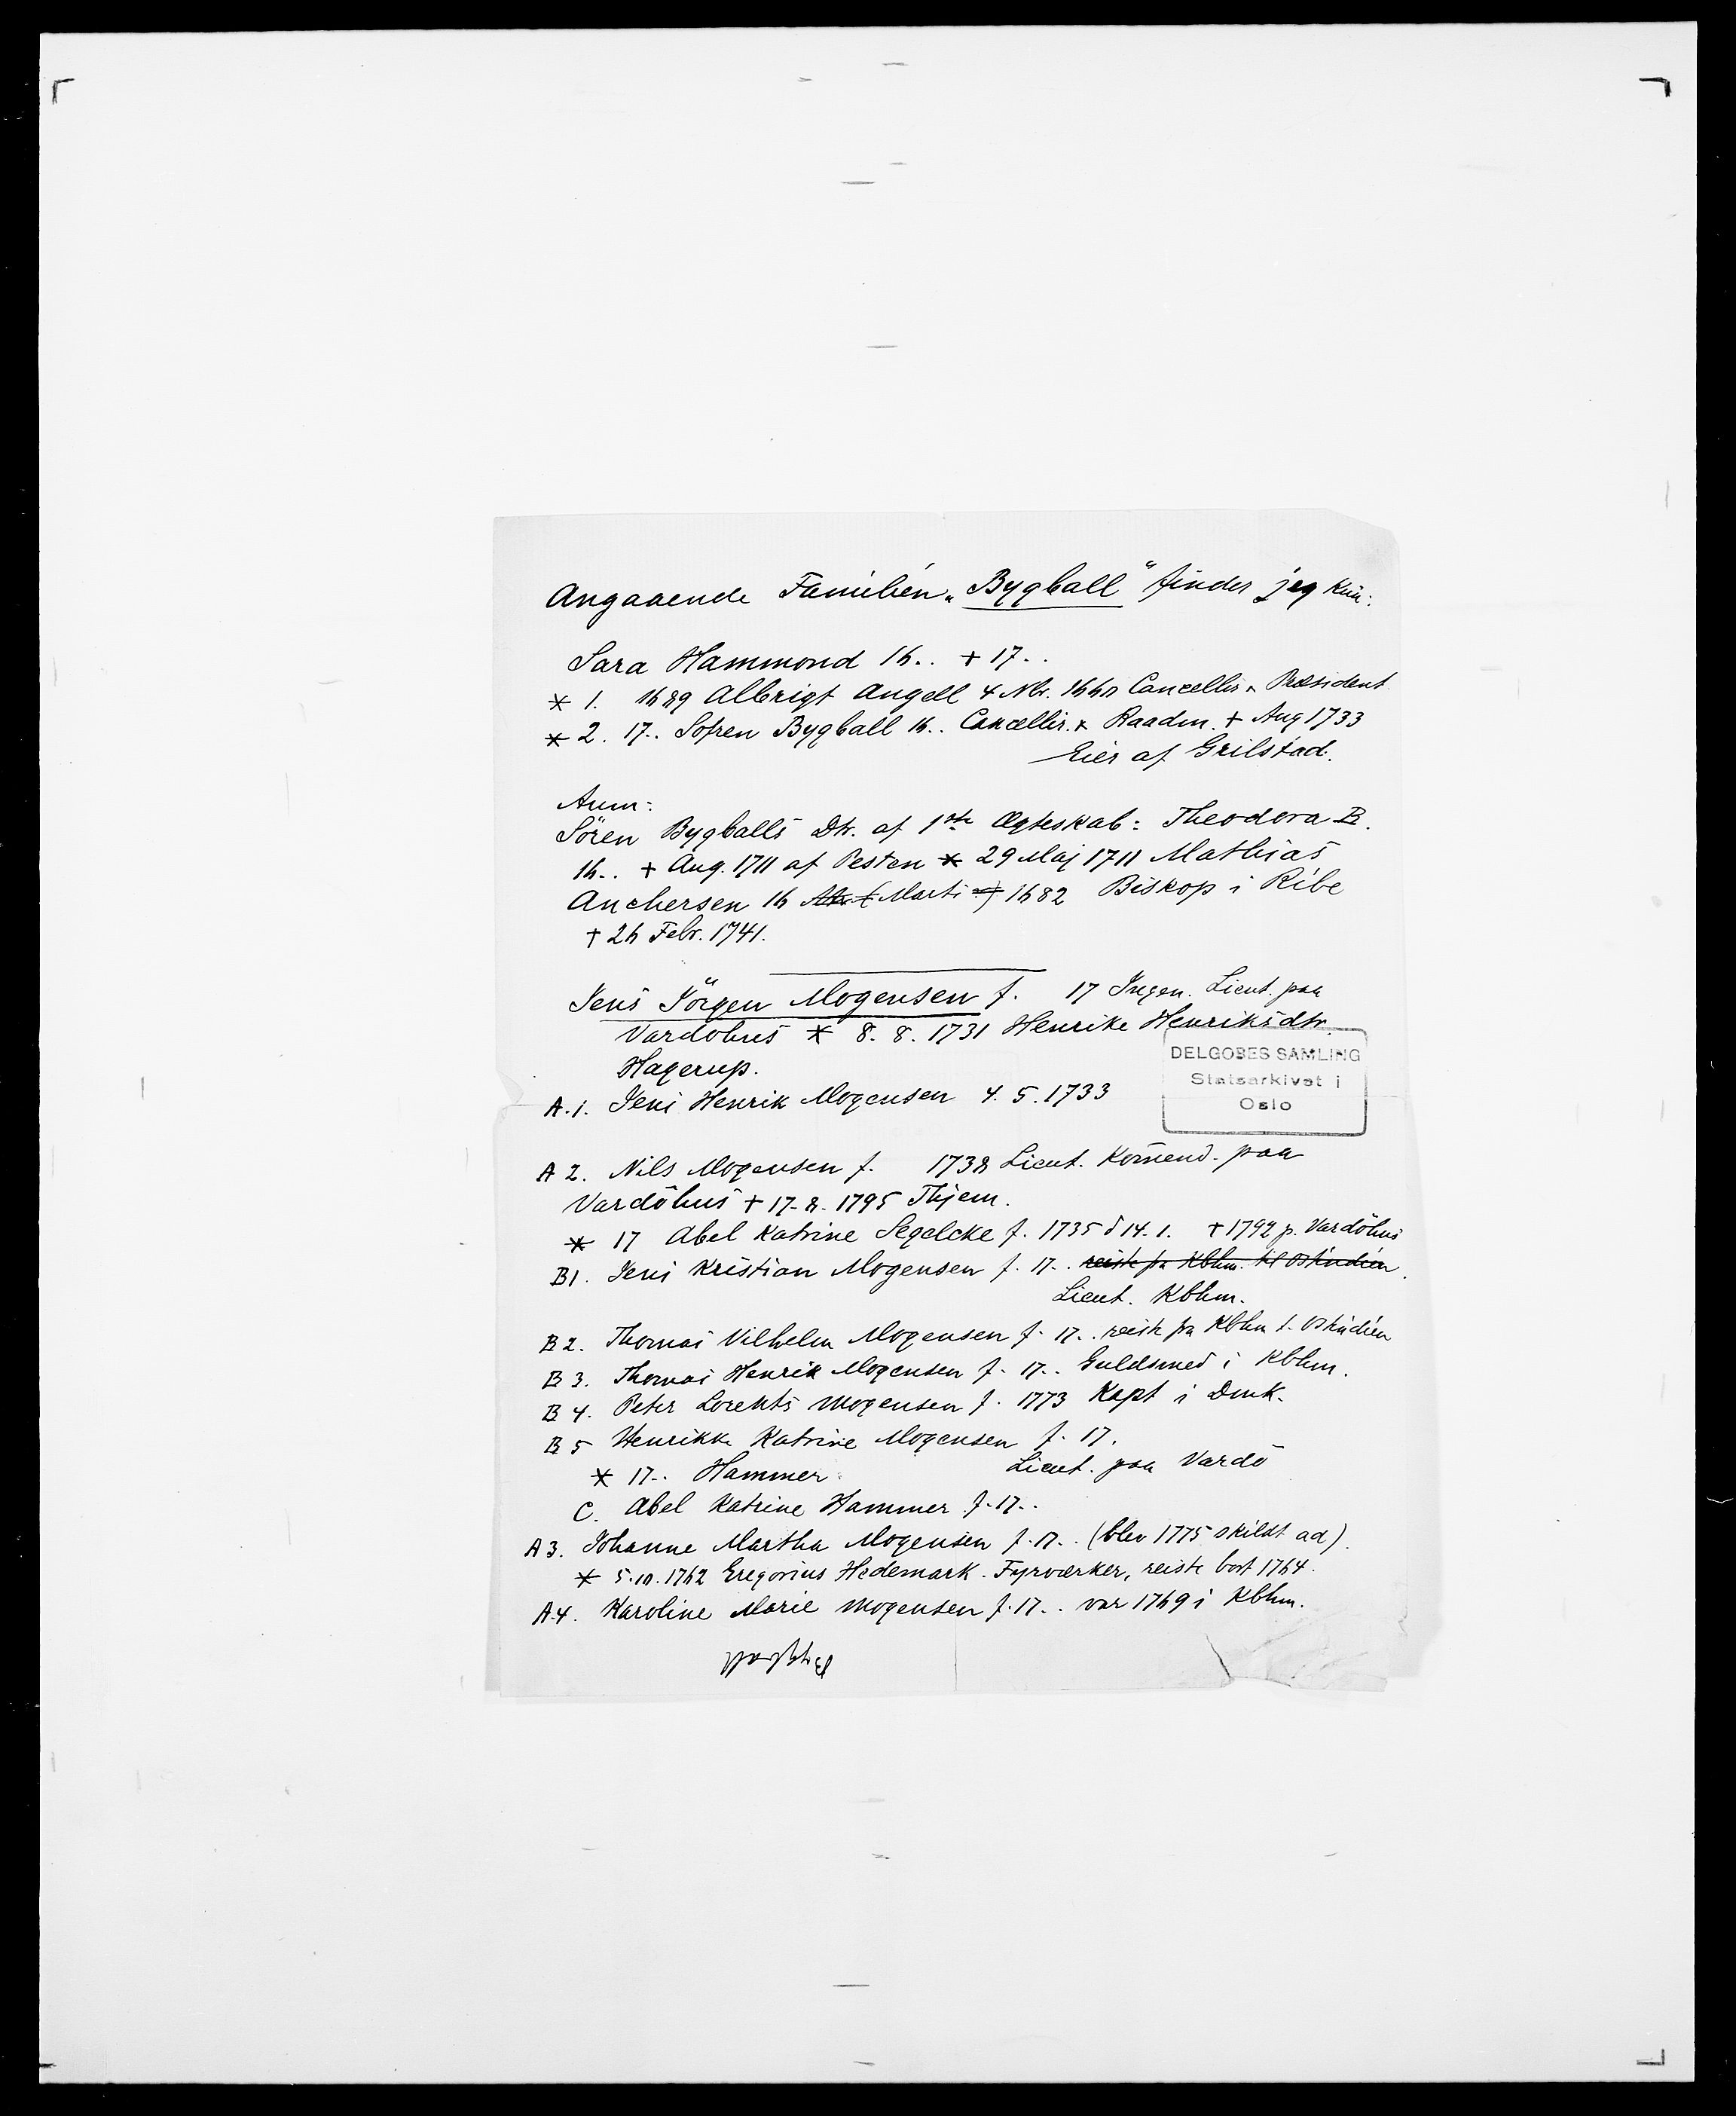 Angaaende Familien „Bygball“ finder jeg kun:
Sara Hammond 16.. † 17..
* 1. 1689 Albrigt Angell 4 Nbr. 1660 Cancellir. & Præsident
* 2. 17.. Sofren Bygball 16.. Cancellir. & Raadm. † Aug 1733
Eier af Grilstad.
Anm:
Sören Bygballs Dtr. af 1ste Ægteskab: Theodora B.
16.. † Aug. 1711 af Pesten * 29 Maj 1711 Mathias
Anchersen 16 Marts 1682 Biskop i Ribe
† 26 Febr. 1741.
Jens Jörgen Mogensen f. 17 Ingen. Lieut. paa
Vardöhus * 8. 8. 1731 Henrike Henriksdtr.
Hagerup.
DELGOBES SAMLING
Statsarkivet i
Oslo
A.1. Jens Henrik Mogensen 4. 5. 1733
A 2. Nils Mogensen f. 1738 Lieut. Komend. paa
Vardöhus † 17-8. 1795 Thjem.
* 17 Abel Katrine Segelcke f. 1735 d 14. 1. † 1792 p. Vardöhus
B1. Jens Kristian Mogensen f. 17.. reiste fra Kbhm. til Ostindien.
Lieut. Kbhm.
B 2. Thomas Vilhelm Mogensen f. 17.. reiste fra Kbhm t. Ostindien
B 3. Thomas Henrik Mogensen f. 17.. Guldsmed i Kbhm.
B 4. Peter Lorents Mogensen f. 1773 Kapt i Dmk.
B 5 Henrikke Katrine Mogensen f. 17.
* 17.. Hammer Lieut. paa Vardö
C. Abel Katrine Hammer f. 17..
A 3. Johanne Martha Mogensen f. 17.. (blev 1775 skildt ad).
* 5.10.1762 Gregorius Hedemark. Fyrværker, reiste bort 1764.
A.4. Karoline Marie Mogensen f. 17.. var 1769 i Kbhm.
Bygball